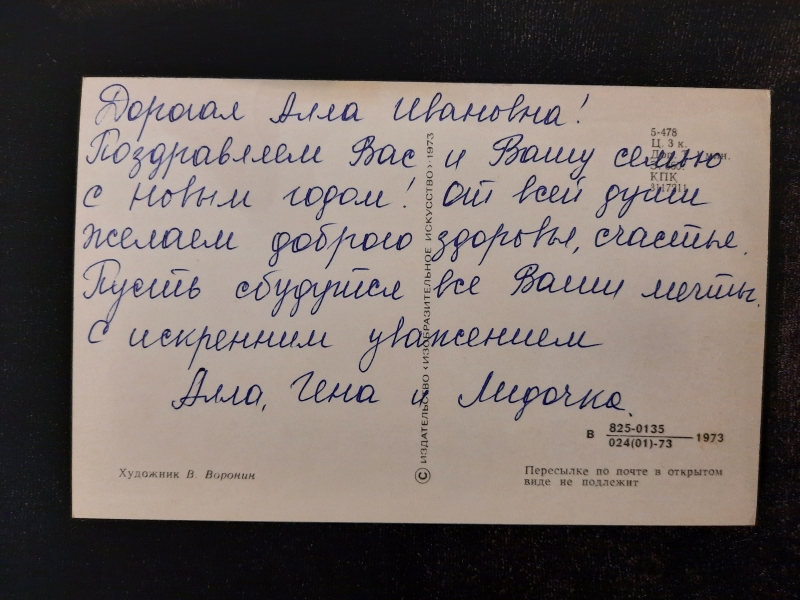 Дорогая Алла Ивановна!
Поздравляем Вас и Вашу семью
с Новым годом! От всей души
желаем доброго здоровья, счастья.
Пусть сбудутся все Ваши мечты.
С искренним уважением
Алла, Гена и Лидочка.
5-478
Ц. 3 к.
КПК
© ИЗДАТЕЛЬСТВО «ИЗОБРАЗИТЕЛЬНОЕ ИСКУССТВО» 1973
В 825-0135
024(01)-73 1973
Художник В. Воронин
Пересылке по почте в открытом
виде не подлежит